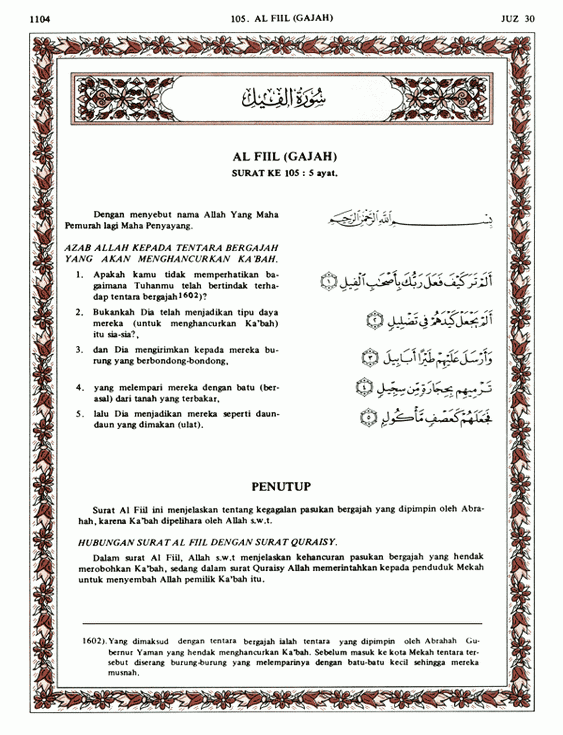 1104
105. AL FIIL (GAJAH)
JUZ 30
سُورَةُ الفِيْل
AL FIIL (GAJAH)
SURAT KE 105 : 5 ayat.
Dengan menyebut nama Allah Yang Maha
Pemurah lagi Maha Penyayang.
بِسْــــــمِ اللَّهِ الرَّحْمَٰنِ الرَّحِيمِ
AZAB ALLAH KEPADA TENTARA BERGAJAH
YANG AKAN MENGHANCURKAN KA'BAH.
1. Apakah kamu tidak memperhatikan ba-
gaimana Tuhanmu telah bertindak terha-
dap tentara bergajah1602)?
أَلَمْ تَرَ كَيْفَ فَعَلَ رَبُّكَ بِأَصْحَٰبِ الْفِيلِ ۝١
2. Bukankah Dia telah menjadikan tipu daya
mereka (untuk menghancurkan Ka'bah)
itu sia-sia?,
أَلَمْ يَجْعَلْ كَيْدَهُمْ فِي تَضْلِيلٍ ۝٢
3. dan Dia mengirimkan kepada mereka bu-
rung yang berbondong-bondong,
وَأَرْسَلَ عَلَيْهِمْ طَيْرًا أَبَابِيلَ ۝٣
4. yang melempari mereka dengan batu (ber-
asal) dari tanah yang terbakar,
تَرْمِيهِم بِحِجَارَةٍ مِّن سِجِّيلٍ ۝٤
5. lalu Dia menjadikan mereka seperti daun-
daun yang dimakan (ulat).
فَجَعَلَهُمْ كَعَصْفٍ مَّأْكُولٍ ۝٥
PENUTUP
Surat Al Fiil ini menjelaskan tentang kegagalan pasukan bergajah yang dipimpin oleh Abra-
hah, karena Ka'bah dipelihara oleh Allah s.w.t.
HUBUNGAN SURAT AL FIIL DENGAN SURAT QURAISY.
Dalam surat Al Fiil, Allah s.w.t menjelaskan kehancuran pasukan bergajah yang hendak
merobohkan Ka'bah, sedang dalam surat Quraisy Allah memerintahkan kepada penduduk Mekah
untuk menyembah Allah pemilik Ka'bah itu.
1602). Yang dimaksud dengan tentara bergajah ialah tentara yang dipimpin oleh Abrahah Gu-
bernur Yaman yang hendak menghancurkan Ka'bah. Sebelum masuk ke kota Mekah tentara ter-
sebut diserang burung-burung yang melemparinya dengan batu-batu kecil sehingga mereka
musnah.